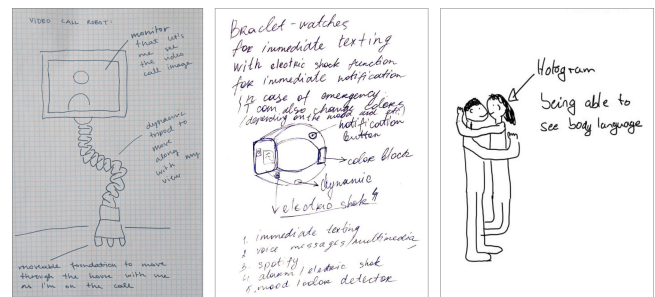 VIDEO CALL ROBOT:
monitor
that let's
me see
the video
call image
dynamic
tripod to
move
along
with my
view
moveable foundation to move
through the home with me
as i'm on the call
Braclet-watches
for immediate texting
with electric shock function
for immediate notification
in case of emergency
It can also change colors
(depending on the mood and notif.)
notification
button
color block
dynamic
electric shok
1. immediate texting
2. voice messages/multimedia
3. spotify
4. alarm/electric shok
5. mood/color detector
Hologram
being able to
see body language